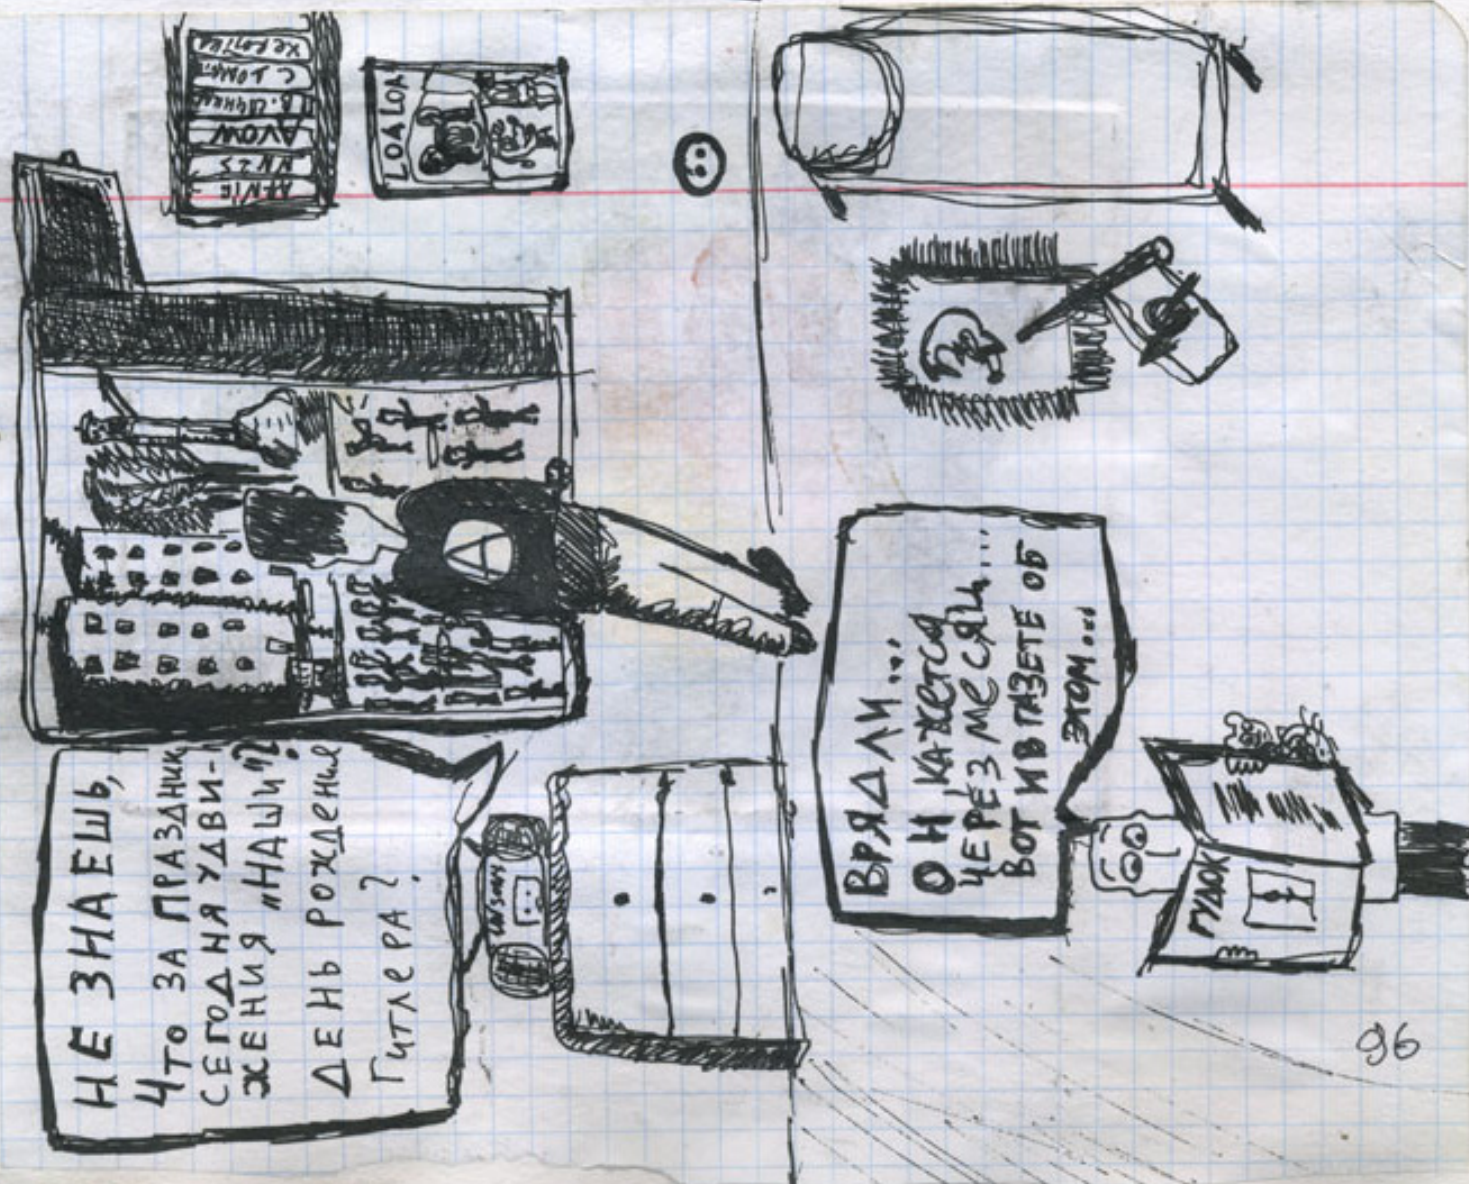 НЕ ЗНАЕШЬ,
ЧТО ЗА ПРАЗДНИК
СЕГОДНЯ У ДВИ-
ЖЕНИЯ "НАШИ"?
ДЕНЬ РОЖДЕНИЯ
ГИТЛЕРА?
ВРЯД ЛИ...
ОН, КАЖЕТСЯ
ЧЕРЕЗ МЕСЯЦ...
ВОТ И В ГАЗЕТЕ ОБ
ЭТОМ...
ГУДОК
LOA LOA
96